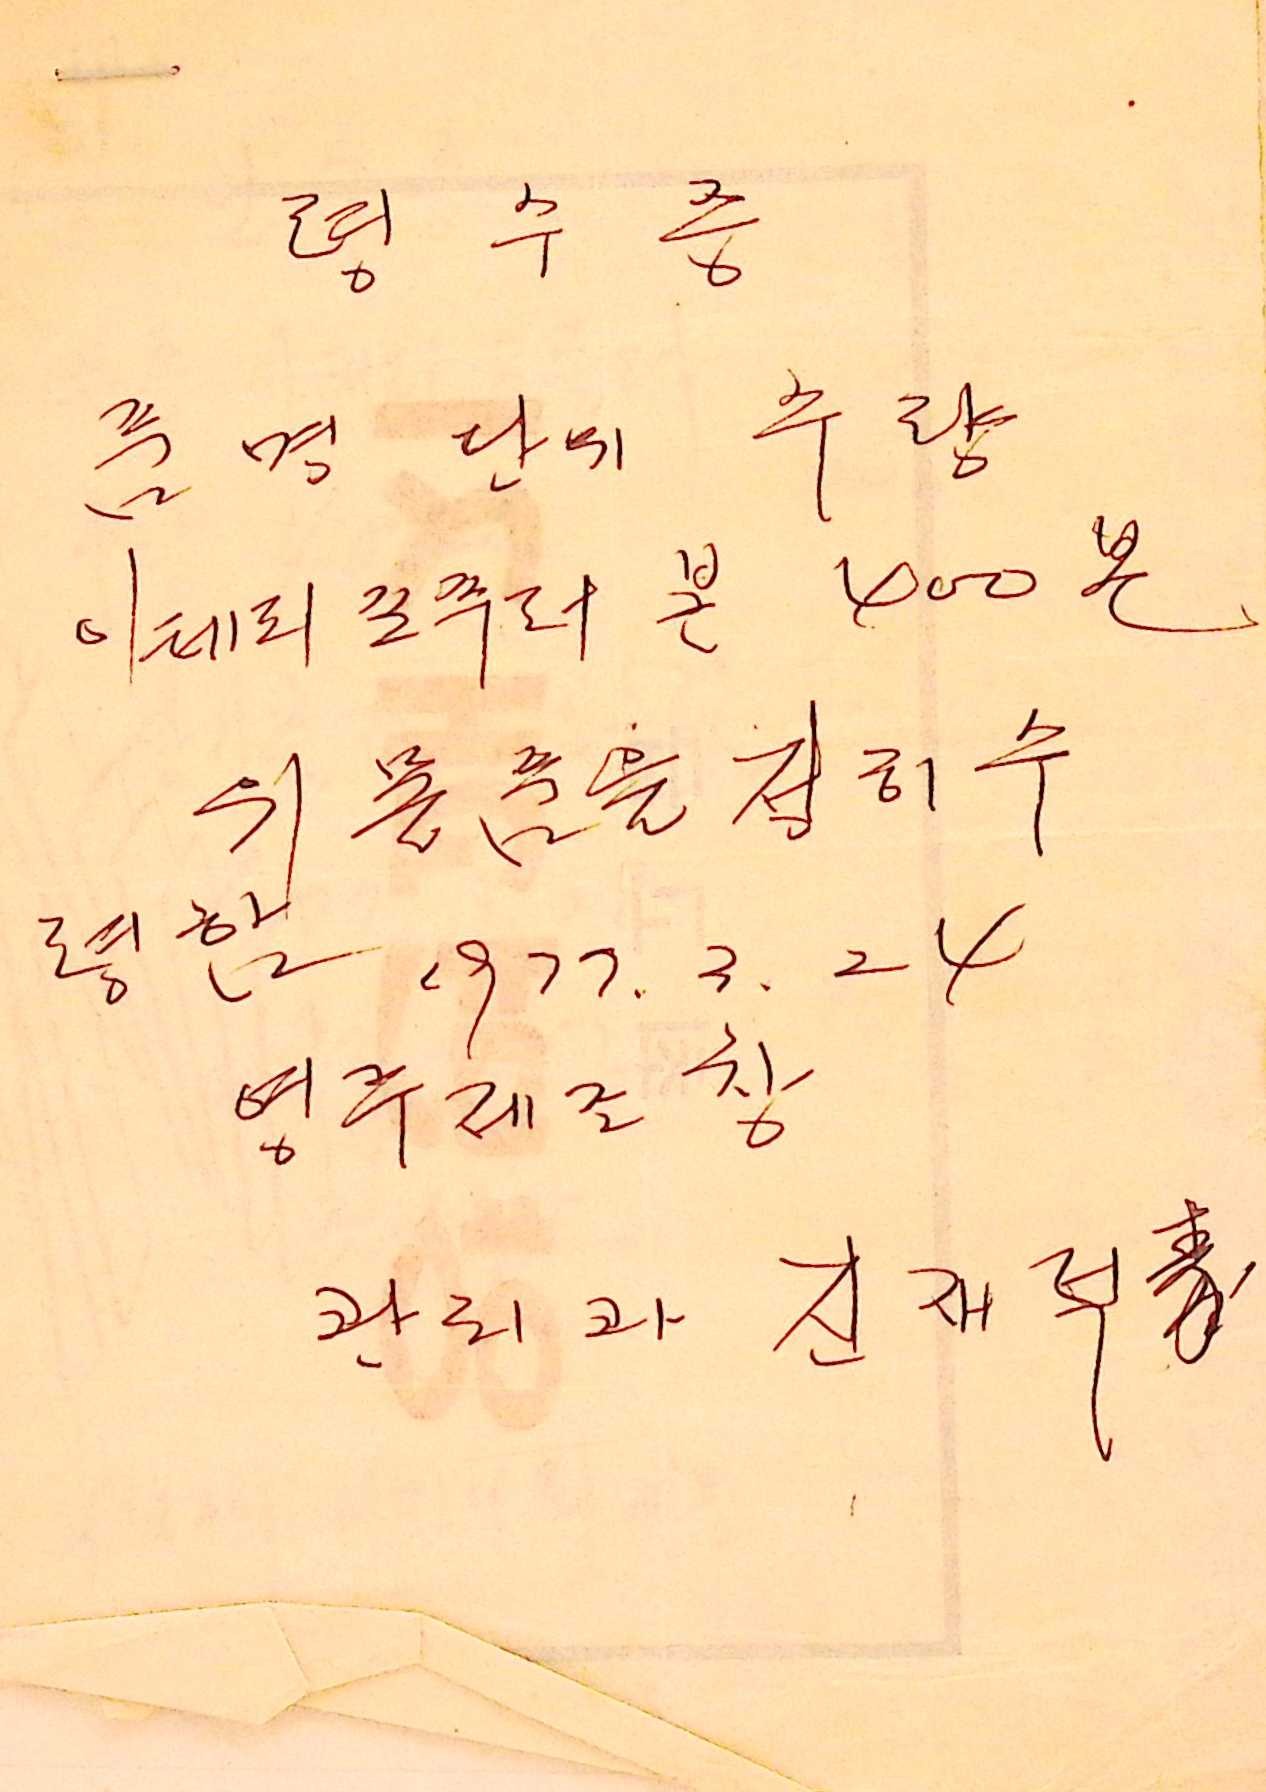 령 수 증
품 명 단위 수 량
이태리 포푸라 본 400 본
위 물품을 정히 수
령함 1977. 3. 24
영주제조창
관리과 김재덕